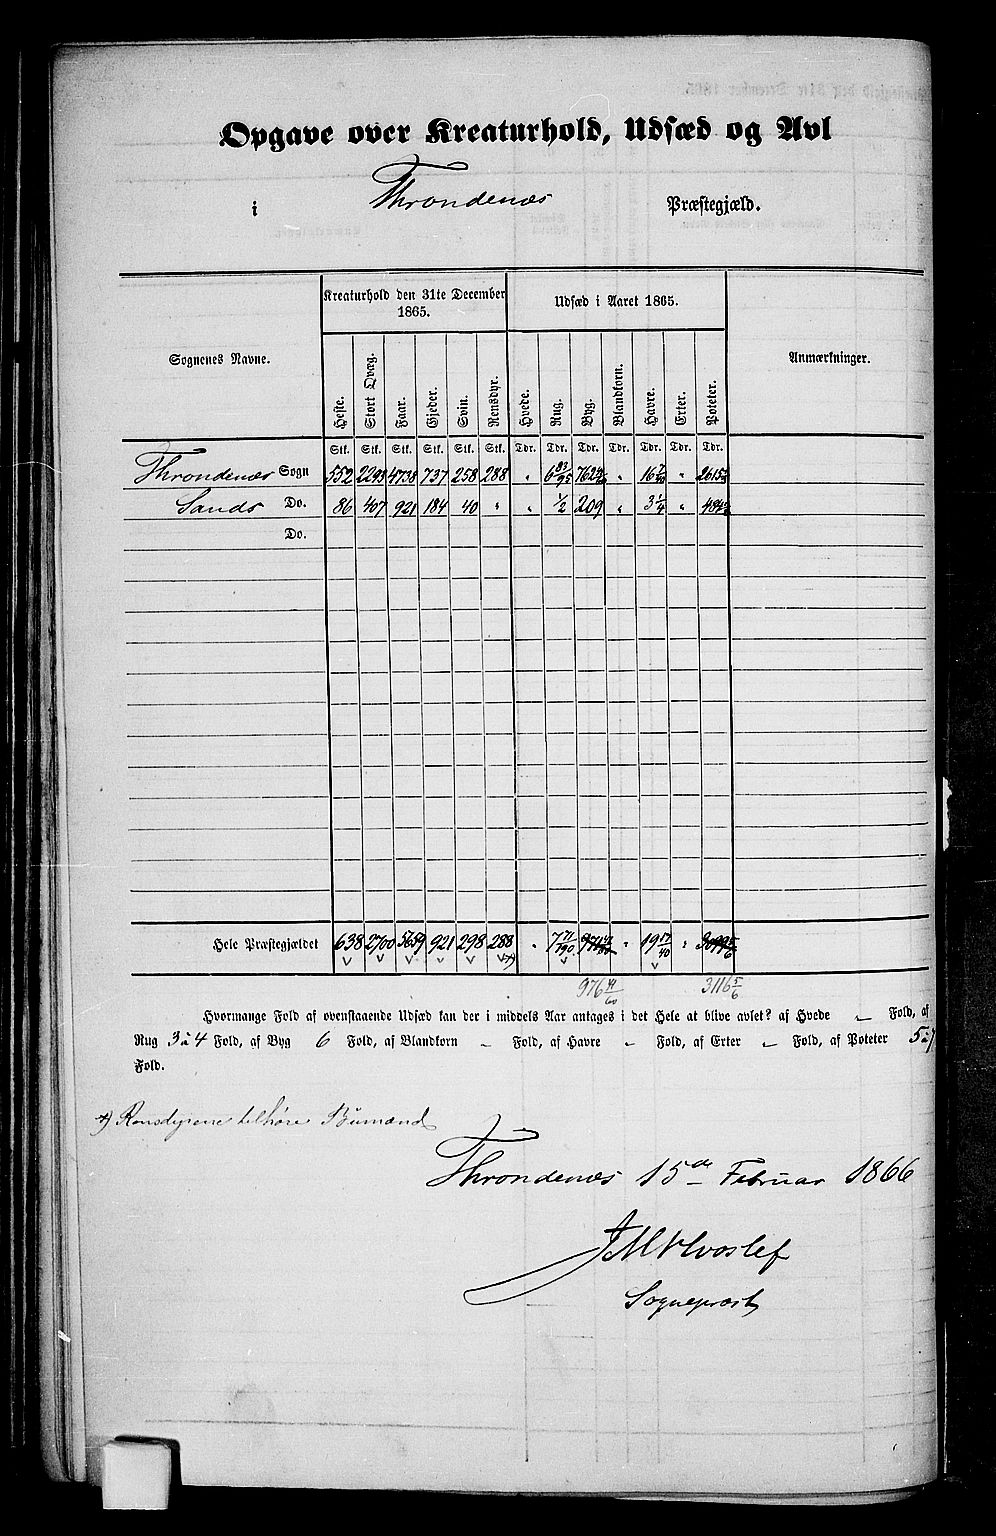 Opgave over Kreaturhold, Udsæd og Avl
i Throndenæs Præstegjæld.
Sognenes Navne. Kreaturhold den 31te December 1865. Udsæd i Aaret 1865. Anmærkninger.
Heste. Stort Qvæg. Faar. Gjeder. Sviin. Rensdyr. Hvede. Rug. Byg. Blandkorn. Havre. Erter. Poteter.
Stk. Stk. Stk. Stk. Stk. Stk. Tdr. Tdr. Tdr. Tdr. Tdr. Tdr. Tdr.
Throndenæs Sogn 552 2293 4738 737 258 288 " 6 " 16 "
Sands Do. 86 407 921 184 40 " " 1/2 209 " 3 1/4 "
Do.
Hele Præstegjældet 638 2700 5659 921 298 288 *) " 7 " 19 17/40 "
3116 5/6
Hvormange Fold af ovenstaaende Udsæd kan der i middels Aar antages i det Hele at blive avlet? af Hvede " Fold, af
Rug 3 à 4 Fold, af Byg 6 Fold, af Blandkorn " Fold, af Havre " Fold, af Erter " Fold, af Poteter 5 à 7
Fold.
*) Rensdyrene tilhøre Bumænd
Throndenæs 15de Februar 1866
J M Hvoslef
Sognepræst